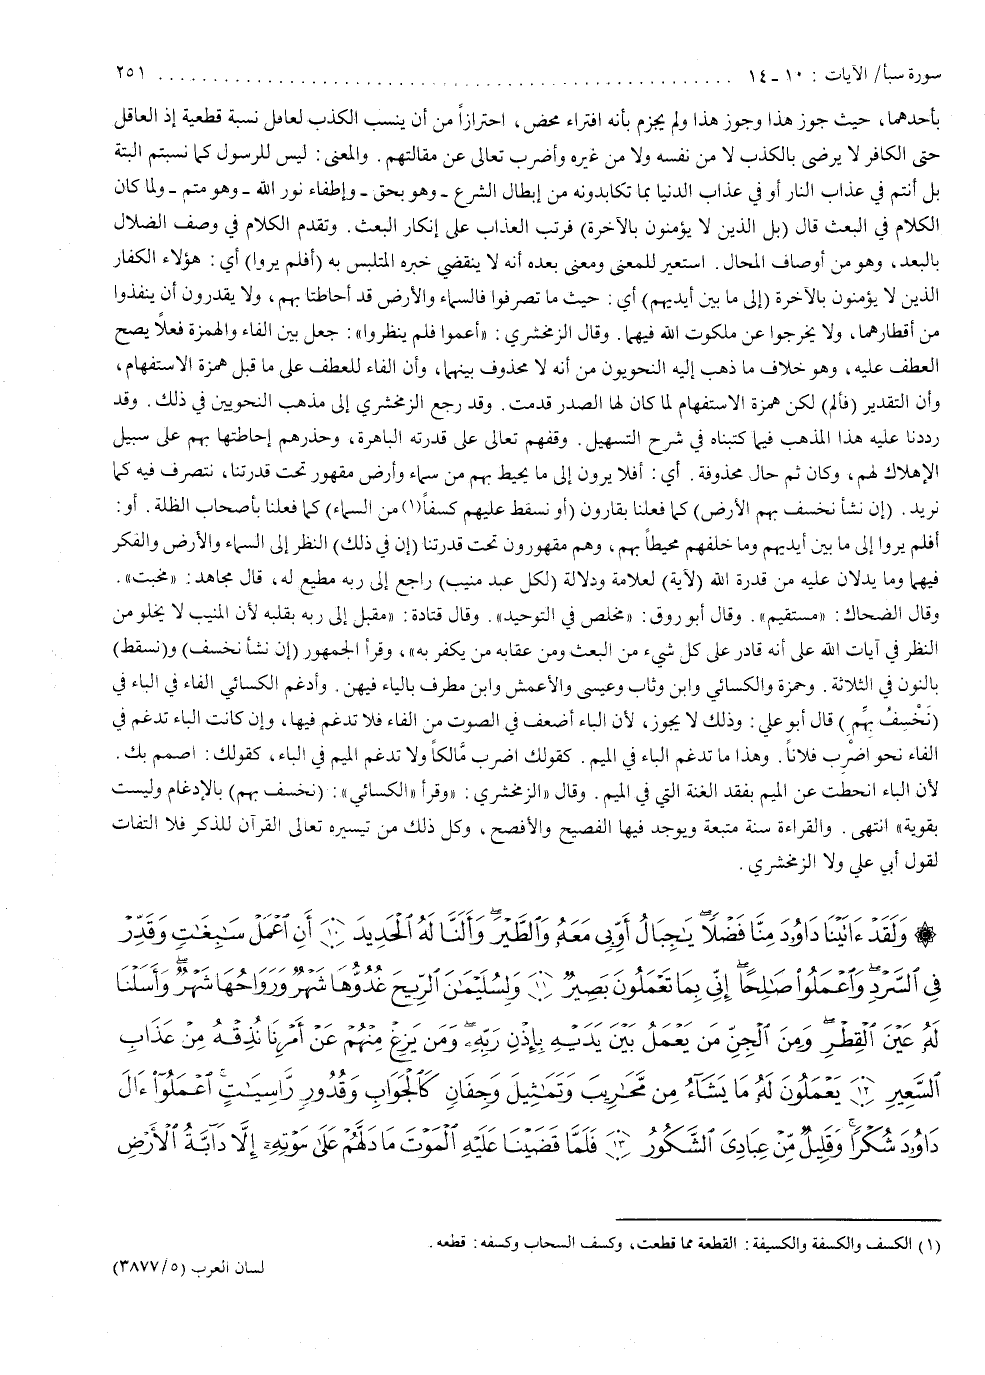 سورة سبأ/ الآيات : ١٠ ـ ١٤ ........................................................ ٢٥١
بأحدهما، حيث جوز هذا وجوز هذا ولم يجزم بأنه افتراء محض، احترازاً من أن ينسب الكذب لعاقل نسبة قطعية إذ العاقل
حتى الكافر لا يرضى بالكذب لا من نفسه ولا من غيره وأضرب تعالى عن مقالتهم. والمعنى: ليس للرسول كما نسبتم البتة
بل أنتم في عذاب النار أو في عذاب الدنيا بما تكابدونه من إبطال الشرع ـ وهو بحق ـ وإطفاء نور الله ـ وهو متم ـ ولما كان
الكلام في البعث قال (بل الذين لا يؤمنون بالآخرة) فرتب العذاب على إنكار البعث. وتقدم الكلام في وصف الضلال
بالبعد، وهو من أوصاف المحال. استعير للمعنى ومعنى بعده أنه لا ينقضي خبره المتلبس به (أفلم يروا) أي: هؤلاء الكفار
الذين لا يؤمنون بالآخرة (إلى ما بين أيديهم) أي: حيث ما تصرفوا فالسماء والأرض قد أحاطتا بهم، ولا يقدرون أن ينفذوا
من أقطارهما، ولا يخرجوا عن ملكوت الله فيهما. وقال الزمخشري: «أعموا فلم ينظروا»: جعل بين الفاء والهمزة فعلاً يصح
العطف عليه، وهو خلاف ما ذهب إليه النحويون من أنه لا محذوف بينهما، وأن الفاء للعطف على ما قبل همزة الاستفهام،
وأن التقدير (فألم) لكن همزة الاستفهام لما كان لها الصدر قدمت. وقد رجع الزمخشري إلى مذهب النحويين في ذلك. وقد
رددنا عليه هذا المذهب فيما كتبناه في شرح التسهيل. وقفهم تعالى على قدرته الباهرة، وحذرهم إحاطتها بهم على سبيل
الإهلاك لهم، وكان ثم حال محذوفة. أي: أفلا يرون إلى ما يحيط بهم من سماء وأرض مقهور تحت قدرتنا، نتصرف فيه كما
نريد. (إن نشأ نخسف بهم الأرض) كما فعلنا بقارون (أو نسقط عليهم كسفاً(١) من السماء) كما فعلنا بأصحاب الظلة. أو:
أفلم يروا إلى ما بين أيديهم وما خلفهم محيطاً بهم، وهم مقهورون تحت قدرتنا (إن في ذلك) النظر إلى السماء والأرض والفكر
فيهما وما يدلان عليه من قدرة الله (لآية) لعلامة ودلالة (لكل عبد منيب) راجع إلى ربه مطيع له، قال مجاهد: «مخبت».
وقال الضحاك: «مستقيم». وقال أبو روق: «مخلص في التوحيد». وقال قتادة: «مقبل إلى ربه بقلبه لأن المنيب لا يخلو من
النظر في آيات الله على أنه قادر على كل شيء من البعث ومن عقابه من يكفر به»، وقرأ الجمهور (إن نشأ نخسف) و(نسقط)
بالنون في الثلاثة. وحمزة والكسائي وابن وثاب وعيسى والأعمش وابن مطرف بالياء فيهن. وأدغم الكسائي الفاء في الباء في
(نَخْسِفُ بِهِّم) قال أبو علي: وذلك لا يجوز، لأن الباء أضعف في الصوت من الفاء فلا تدغم فيها، وإن كانت الباء تدغم في
الفاء نحو اضْرِب فلاناً. وهذا ما تدغم الباء في الميم. كقولك اضرب مَّالكاً ولا تدغم الميم في الباء، كقولك: اصمم بك.
لأن الباء انحطت عن الميم بفقد الغنة التي في الميم. وقال «الزمخشري: «وقرأ «الكسائي»: (نخسف بهم) بالإدغام وليست
بقوية» انتهى. والقراءة سنة متبعة ويوجد فيها الفصيح والأفصح، وكل ذلك من تيسيره تعالى القرآن للذكر فلا التفات
لقول أبي علي ولا الزمخشري.
۞ وَلَقَدْ ءَاتَيْنَا دَاوُۥدَ مِنَّا فَضْلًا ۖ يَٰجِبَالُ أَوِّبِى مَعَهُۥ وَٱلطَّيْرَ ۖ وَأَلَنَّا لَهُ ٱلْحَدِيدَ ﴿١٠﴾ أَنِ ٱعْمَلْ سَٰبِغَٰتٍ وَقَدِّرْ
فِى ٱلسَّرْدِ ۖ وَٱعْمَلُوا۟ صَٰلِحًا ۖ إِنِّى بِمَا تَعْمَلُونَ بَصِيرٌ ﴿١١﴾ وَلِسُلَيْمَٰنَ ٱلرِّيحَ غُدُوُّهَا شَهْرٌ وَرَوَاحُهَا شَهْرٌ ۖ وَأَسَلْنَا
لَهُۥ عَيْنَ ٱلْقِطْرِ ۖ وَمِنَ ٱلْجِنِّ مَن يَعْمَلُ بَيْنَ يَدَيْهِ بِإِذْنِ رَبِّهِۦ ۖ وَمَن يَزِغْ مِنْهُمْ عَنْ أَمْرِنَا نُذِقْهُ مِنْ عَذَابِ
ٱلسَّعِيرِ ﴿١٢﴾ يَعْمَلُونَ لَهُۥ مَا يَشَآءُ مِن مَّحَٰرِيبَ وَتَمَٰثِيلَ وَجِفَانٍ كَٱلْجَوَابِ وَقُدُورٍ رَّاسِيَٰتٍ ۚ ٱعْمَلُوٓا۟ ءَالَ
دَاوُۥدَ شُكْرًا ۚ وَقَلِيلٌ مِّنْ عِبَادِىَ ٱلشَّكُورُ ﴿١٣﴾ فَلَمَّا قَضَيْنَا عَلَيْهِ ٱلْمَوْتَ مَا دَلَّهُمْ عَلَىٰ مَوْتِهِۦٓ إِلَّا دَآبَّةُ ٱلْأَرْضِ
(١) الكسف والكسفة والكسيفة: القطعة مما قطعت، وكسف السحاب وكسفه: قطعه.
لسان العرب (٣٨٧٧/٥)